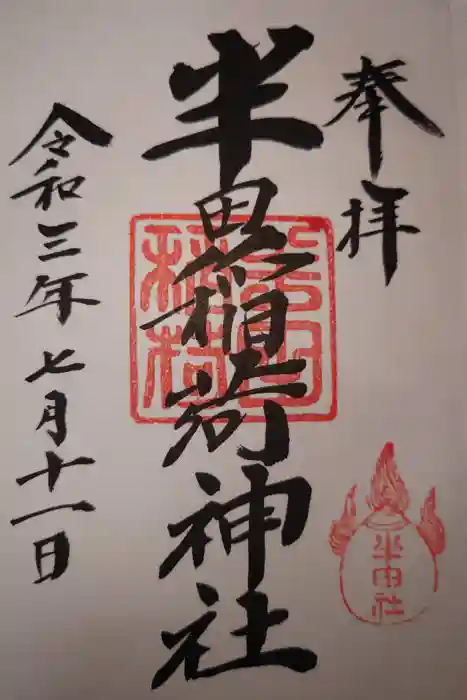 奉拝
半田稲荷神社
令和三年七月十一日
半田稲荷
半田社